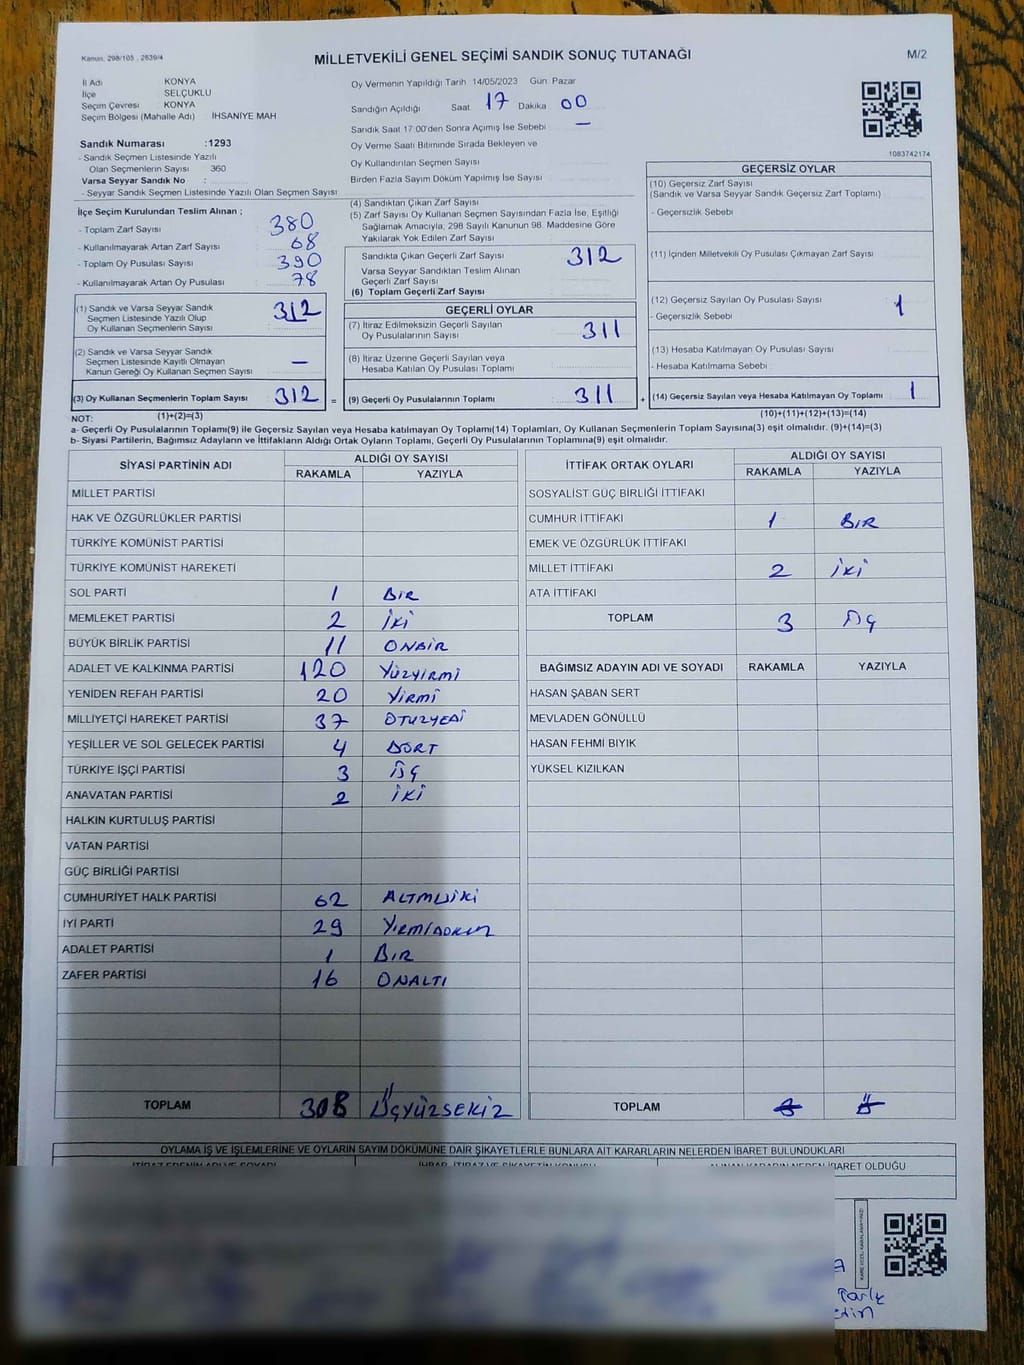 Kanun. 298/105 , 2839/4
MİLLETVEKİLİ GENEL SEÇİMİ SANDIK SONUÇ TUTANAĞI
M/2
İl Adı KONYA
İlçe SELÇUKLU
Seçim Çevresi KONYA
Seçim Bölgesi (Mahalle Adı) İHSANİYE MAH
Sandık Numarası :1293
- Sandık Seçmen Listesinde Yazılı
Olan Seçmenlerin Sayısı 360
Varsa Seyyar Sandık No :
- Seyyar Sandık Seçmen Listesinde Yazılı Olan Seçmen Sayısı
Oy Vermenin Yapıldığı Tarih 14/05/2023 Gün Pazar
Sandığın Açıldığı Saat 17 Dakika 00
Sandık Saat 17:00'den Sonra Açımış İse Sebebi —
Oy Verme Saati Bitiminde Sırada Bekleyen ve
Oy Kullandırılan Seçmen Sayısı
Birden Fazla Sayım Döküm Yapılmış İse Sayısı
1083742174
İlçe Seçim Kurulundan Teslim Alınan ;
- Toplam Zarf Sayısı : 380
- Kullanılmayarak Artan Zarf Sayısı : 68
- Toplam Oy Pusulası Sayısı : 390
- Kullanılmayarak Artan Oy Pusulası : 78
(1) Sandık ve Varsa Seyyar Sandık
Seçmen Listesinde Yazılı Olup
Oy Kullanan Seçmenlerin Sayısı : 312
(2) Sandık ve Varsa Seyyar Sandık
Seçmen Listesinde Kayıtlı Olmayan
Kanun Gereği Oy Kullanan Seçmen Sayısı : —
(3) Oy Kullanan Seçmenlerin Toplam Sayısı : 312 =
(1)+(2)=(3)
(4) Sandıktan Çıkan Zarf Sayısı
(5) Zarf Sayısı Oy Kullanan Seçmen Sayısından Fazla İse, Eşitliği
Sağlamak Amacıyla, 298 Sayılı Kanunun 98. Maddesine Göre
Yakılarak Yok Edilen Zarf Sayısı
Sandıkta Çıkan Geçerli Zarf Sayısı : 312
Varsa Seyyar Sandıktan Teslim Alınan
Geçerli Zarf Sayısı
(6) Toplam Geçerli Zarf Sayısı
GEÇERLİ OYLAR
(7) İtiraz Edilmeksizin Geçerli Sayılan
Oy Pusulalarının Sayısı : 311
(8) İtiraz Üzerine Geçerli Sayılan veya
Hesaba Katılan Oy Pusulası Toplamı
(9) Geçerli Oy Pusulalarının Toplamı : 311 +
GEÇERSİZ OYLAR
(10) Geçersiz Zarf Sayısı
(Sandık ve Varsa Seyyar Sandık Geçersiz Zarf Toplamı)
- Geçersizlik Sebebi
(11) İçinden Milletvekili Oy Pusulası Çıkmayan Zarf Sayısı
(12) Geçersiz Sayılan Oy Pusulası Sayısı 1
- Geçersizlik Sebebi
(13) Hesaba Katılmayan Oy Pusulası Sayısı
- Hesaba Katılmama Sebebi
(14) Geçersiz Sayılan veya Hesaba Katılmayan Oy Toplamı 1
(10)+(11)+(12)+(13)=(14)
NOT:
a- Geçerli Oy Pusulalarının Toplamı(9) ile Geçersiz Sayılan veya Hesaba katılmayan Oy Toplamı(14) Toplamları, Oy Kullanan Seçmenlerin Toplam Sayısına(3) eşit olmalıdır. (9)+(14)=(3)
b- Siyasi Partilerin, Bağımsız Adayların ve İttifakların Aldığı Ortak Oyların Toplamı, Geçerli Oy Pusulalarının Toplamına(9) eşit olmalıdır.
SİYASİ PARTİNİN ADI ALDIĞI OY SAYISI
RAKAMLA YAZIYLA
MİLLET PARTİSİ
HAK VE ÖZGÜRLÜKLER PARTİSİ
TÜRKİYE KOMÜNİST PARTİSİ
TÜRKİYE KOMÜNİST HAREKETİ
SOL PARTİ 1 BİR
MEMLEKET PARTİSİ 2 İKİ
BÜYÜK BİRLİK PARTİSİ 11 ONBİR
ADALET VE KALKINMA PARTİSİ 120 YÜZYİRMİ
YENİDEN REFAH PARTİSİ 20 YİRMİ
MİLLİYETÇİ HAREKET PARTİSİ 37 OTUZYEDİ
YEŞİLLER VE SOL GELECEK PARTİSİ 4 DÖRT
TÜRKİYE İŞÇİ PARTİSİ 3 ÜÇ
ANAVATAN PARTİSİ 2 İKİ
HALKIN KURTULUŞ PARTİSİ
VATAN PARTİSİ
GÜÇ BİRLİĞİ PARTİSİ
CUMHURİYET HALK PARTİSİ 62 ALTMIŞİKİ
İYİ PARTİ 29 YİRMİDOKUZ
ADALET PARTİSİ 1 BİR
ZAFER PARTİSİ 16 ONALTI
TOPLAM 308 ÜÇYÜZSEKİZ
İTTİFAK ORTAK OYLARI ALDIĞI OY SAYISI
RAKAMLA YAZIYLA
SOSYALİST GÜÇ BİRLİĞİ İTTİFAKI
CUMHUR İTTİFAKI 1 BİR
EMEK VE ÖZGÜRLÜK İTTİFAKI
MİLLET İTTİFAKI 2 İKİ
ATA İTTİFAKI
TOPLAM 3 ÜÇ
BAĞIMSIZ ADAYIN ADI VE SOYADI RAKAMLA YAZIYLA
HASAN ŞABAN SERT
MEVLADEN GÖNÜLLÜ
HASAN FEHMİ BIYIK
YÜKSEL KIZILKAN
TOPLAM
OYLAMA İŞ VE İŞLEMLERİNE VE OYLARIN SAYIM DÖKÜMÜNE DAİR ŞİKAYETLERLE BUNLARA AİT KARARLARIN NELERDEN İBARET BULUNDUKLARI
İBARET OLDUĞU